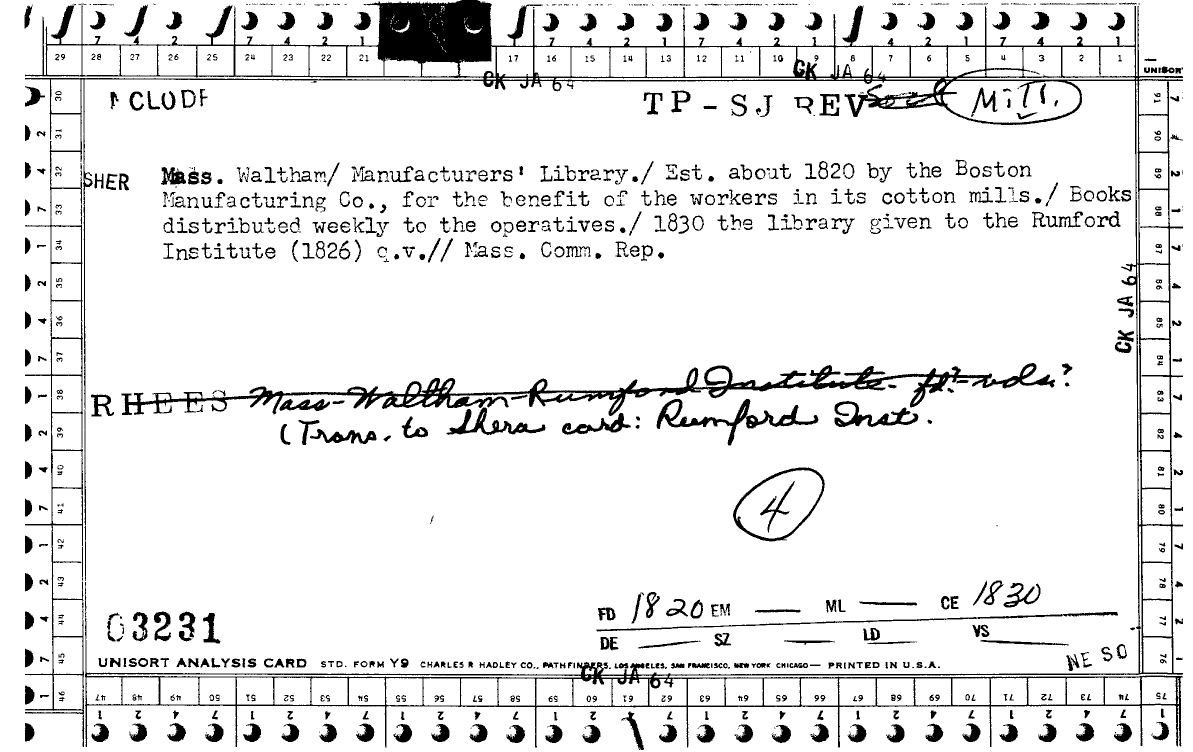 7 4 2 1 7 4 2 1 7 4 2 1 7 4 2 1 7 4 2 1
29 28 27 26 25 24 23 22 21 17 16 15 14 13 12 11 10 9 8 7 6 5 4 3 2 1
UNISORT
CK JA 64 CK JA 64
CLODE TP-SJ REV Mill.
SHER Mass. Waltham/ Manufacturers' Library./ Est. about 1820 by the Boston
Manufacturing Co., for the benefit of the workers in its cotton mills./ Books
distributed weekly to the operatives./ 1830 the library given to the Rumford
Institute (1826) q.v.// Mass. Comm. Rep.
CK JA 64
RHEES Mass-Waltham-Rumford Institute- fd?-vols?
(Trans. to Shera card: Rumford Inst.
4
FD 1820 EM — ML — CE 1830
DE — SZ — LD — VS —
03231
NE SO
UNISORT ANALYSIS CARD STD. FORM Y9 CHARLES R HADLEY CO., PATHFINDERS, LOS ANGELES, SAN FRANCISCO, NEW YORK CHICAGO — PRINTED IN U.S.A.
CK JA 64
47 48 49 50 51 52 53 54 55 56 57 58 59 60 61 62 63 64 65 66 67 68 69 70 71 72 73 74 75